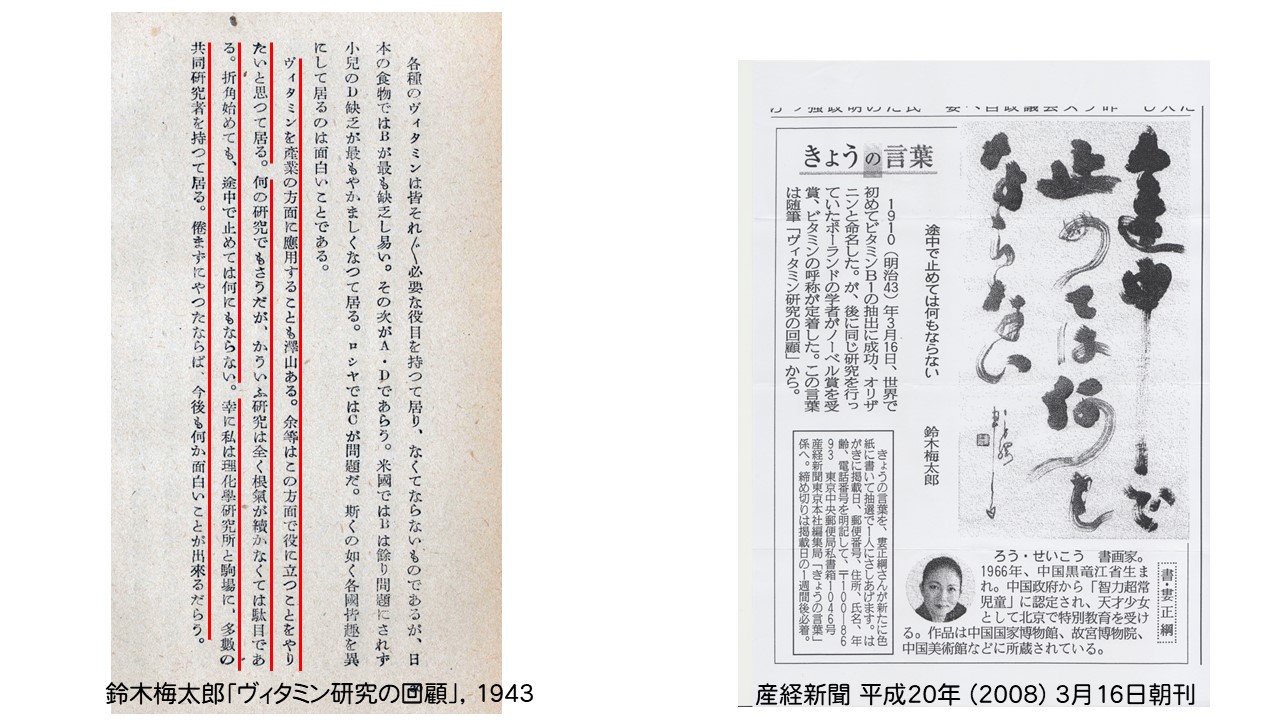 各種のヴィタミンは皆それ〲必要な役目を持つて居り、なくてならないものであるが、日
本の食物ではBが最も缺乏し易い。その次がA・Dであらう。米國ではBは餘り問題にされず
小兒のD缺乏が最もやかましくなつて居る。ロシヤではCが問題だ。斯くの如く各國皆趣を異
にして居るのは面白いことである。
ヴィタミンを産業の方面に應用することも澤山ある。余等はこの方面で役に立つことをやり
たいと思つて居る。何の研究でもさうだが、かういふ研究は全く根氣が續かなくては駄目であ
る。折角始めても、途中で止めては何にもならない。幸に私は理化學研究所と駒場に、多數の
共同研究者を持つて居る。倦まずにやつたならば、今後も何か面白いことが出來るだらう。
鈴木梅太郎「ヴィタミン研究の回顧」, 1943
途中で
止めては何も
ならない
きょうの言葉
途中で止めては何もならない 鈴木梅太郎
1910(明治43)年3月16日、世界で
初めてビタミンB1の抽出に成功、オリザ
ニンと命名した。が、後に同じ研究を行っ
ていたポーランドの学者がノーベル賞を受
賞、ビタミンの呼称が定着した。この言葉
は随筆「ヴィタミン研究の回顧」から。
きょうの言葉を、婁正綱さんが新たに色
紙に書いて抽選で1人にさしあげます。は
がきに掲載日、郵便番号、住所、氏名、年
齢、電話番号を明記して、〒100-86
93 東京中央郵便局私書箱1046号
産経新聞東京本社編集局「きょうの言葉」
係へ。締め切りは掲載日の1週間後必着。
書・婁正綱
ろう・せいこう 書画家。
1966年、中国黒竜江省生ま
れ。中国政府から「智力超常
児童」に認定され、天才少女
として北京で特別教育を受け
る。作品は中国国家博物館、故宮博物院、
中国美術館などに所蔵されている。
産経新聞 平成20年 (2008) 3月16日朝刊